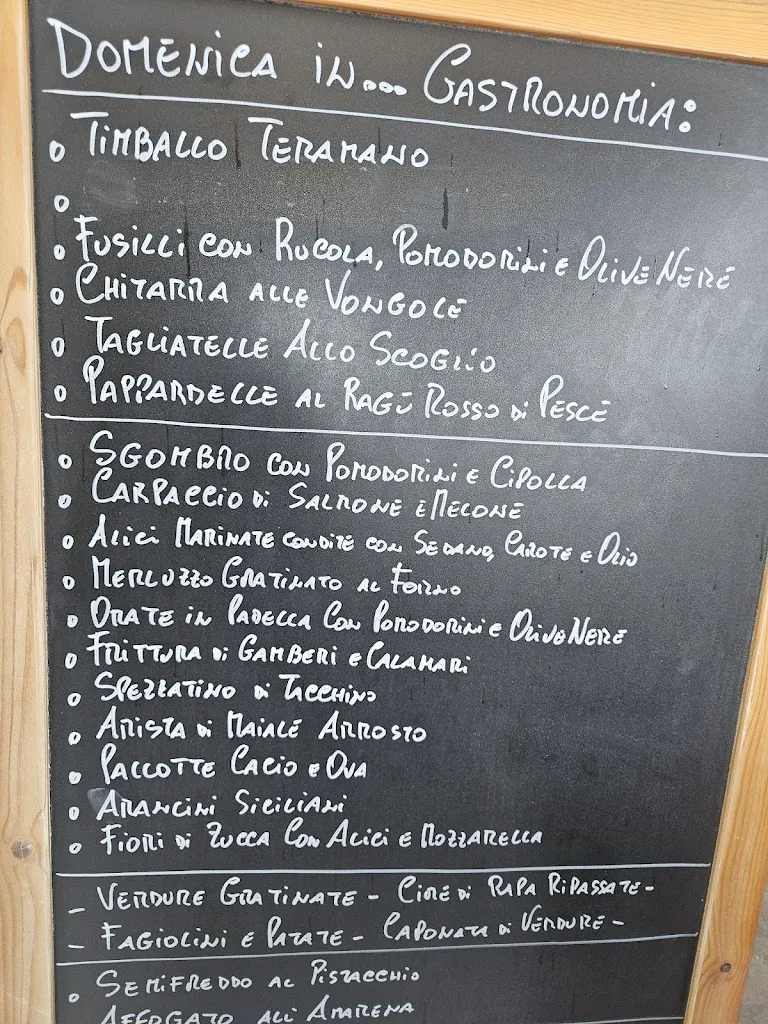 DOMENICA IN... GASTRONOMIA:
TIMBALLO TERAMANO
FUSILLI CON RUCOLA, POMODORINI E OLIVE NERE
CHITARRA ALLE VONGOLE
TAGLIATELLE ALLO SCOGLIO
PAPPARDELLE AL RAGÙ ROSSO DI PESCE
SGOMBRO CON POMODORINI E CIPOLLA
CARPACCIO DI SALMONE E MELONE
ALICI MARINATE CONDITE CON SEDANO, CAROTE E OLIO
MERLUZZO GRATINATO AL FORNO
ORATE IN PADELLA CON POMODORINI E OLIVE NERE
FRITTURA DI GAMBERI E CALAMARI
SPEZZATINO DI TACCHINO
ARISTA DI MAIALE ARROSTO
PALLOTTE CACIO E OVA
ARANCINI SICILIANI
FIORI DI ZUCCA CON ALICI E MOZZARELLA
- VERDURE GRATINATE - CIME DI RAPA RIPASSATE -
- FAGIOLINI E PATATE - CAPONATA DI VERDURE -
SEMIFREDDO AL PISTACCHIO
AFFOGATO ALL'AMARENA